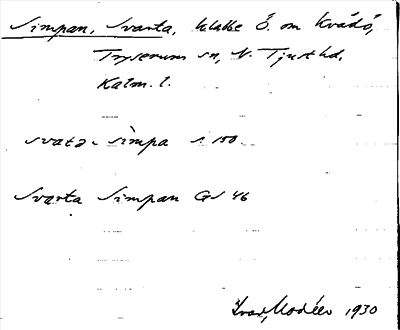 Simpan, Svarta, klabbe Ö. om Kvädö,
Tryserums sn, N. Tjust hd,
Kalm. l.
svata- simpa s 150
Svarta Simpan GS 46
Ivar Modéer 1930